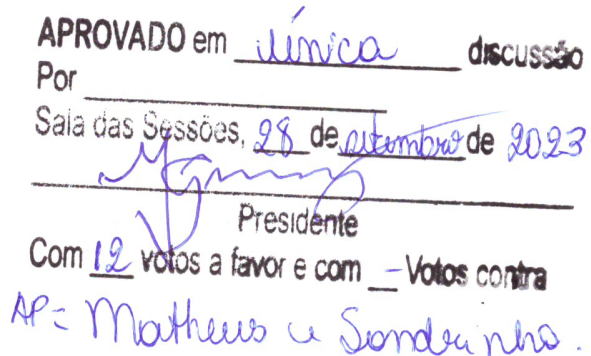 APROVADO em única discussão
Por
Sala das Sessões, 28 de setembro de 2023
Presidente
Com 12 votos a favor e com - Votos contra
AP= Matheus e Sandrinho.